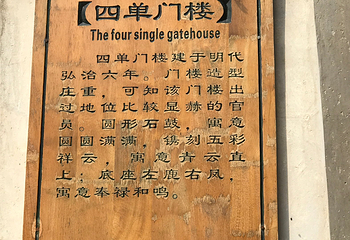 【四单门楼】
The four single gatehouse
四单门楼建于明代
弘治六年。门楼造型
庄重，可知该门楼出
过地位比较显赫的官
员。圆形石鼓，寓意
圆圆满满，镌刻五彩
祥云，寓意青云直
上；底座左鹿右凤，
寓意奉禄和鸣。